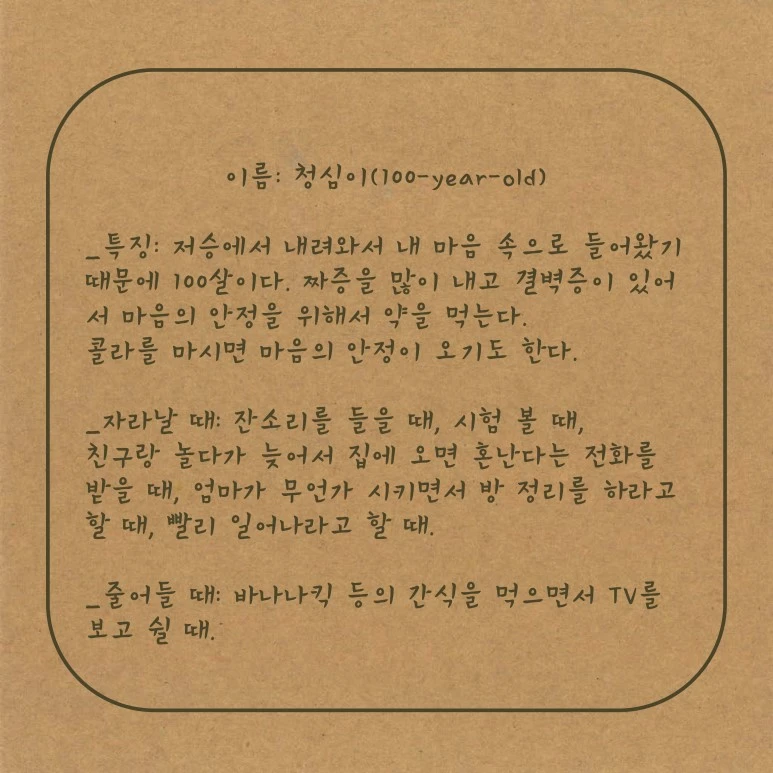 이름: 청심이(100-year-old)
_특징: 저승에서 내려와서 내 마음 속으로 들어왔기
때문에 100살이다. 짜증을 많이 내고 결벽증이 있어
서 마음의 안정을 위해서 약을 먹는다.
콜라를 마시면 마음의 안정이 오기도 한다.
_자라날 때: 잔소리를 들을 때, 시험 볼 때,
친구랑 놀다가 늦어서 집에 오면 혼난다는 전화를
받을 때, 엄마가 무언가 시키면서 방 정리를 하라고
할 때, 빨리 일어나라고 할 때.
_줄어들 때: 바나나킥 등의 간식을 먹으면서 TV를
보고 쉴 때.